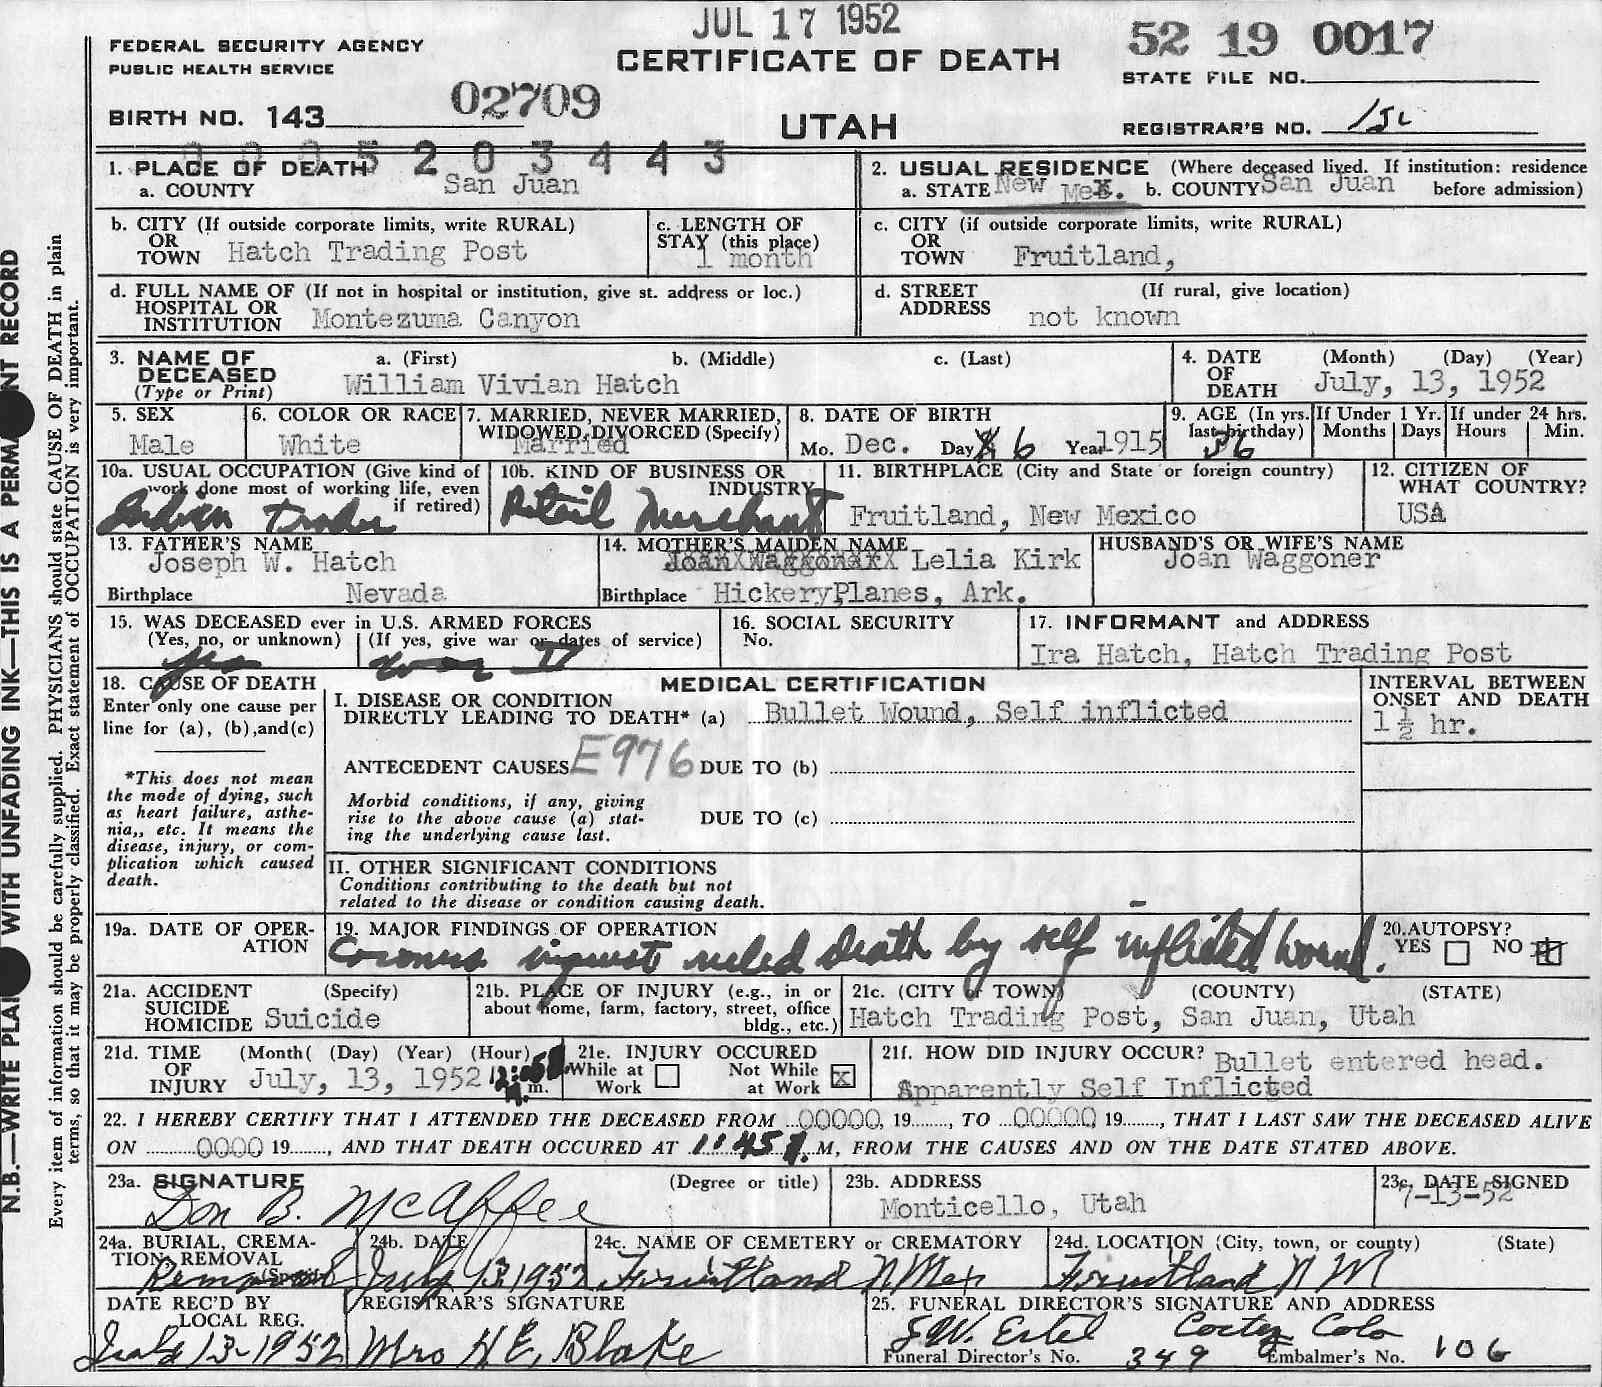 JUL 17 1952
FEDERAL SECURITY AGENCY
PUBLIC HEALTH SERVICE
CERTIFICATE OF DEATH
52 19 0017
STATE FILE NO.
BIRTH NO. 143
02709
UTAH
REGISTRAR'S NO.
5203443
1. PLACE OF DEATH
a. COUNTY San Juan
2. USUAL RESIDENCE (Where deceased lived. If institution: residence
a. STATE New Mex. b. COUNTY San Juan before admission)
b. CITY (If outside corporate limits, write RURAL)
OR
TOWN Hatch Trading Post
c. LENGTH OF
STAY (this place)
1 month
c. CITY (if outside corporate limits, write RURAL)
OR
TOWN Fruitland,
d. FULL NAME OF (If not in hospital or institution, give st. address or loc.)
HOSPITAL OR
INSTITUTION Montezuma Canyon
d. STREET (If rural, give location)
ADDRESS not known
3. NAME OF
DECEASED
(Type or Print)
a. (First) b. (Middle) c. (Last)
William Vivian Hatch
4. DATE (Month) (Day) (Year)
OF
DEATH July, 13, 1952
5. SEX
Male
6. COLOR OR RACE
White
7. MARRIED, NEVER MARRIED,
WIDOWED, DIVORCED (Specify)
Married
8. DATE OF BIRTH
Mo. Dec. Day 6 Year 1915
9. AGE (In yrs.
last birthday)
36
If Under 1 Yr.
Months Days
If under 24 hrs.
Hours Min.
10a. USUAL OCCUPATION (Give kind of
work done most of working life, even
if retired)
Indian Trader
10b. KIND OF BUSINESS OR
INDUSTRY
Retail Merchant
11. BIRTHPLACE (City and State or foreign country)
Fruitland, New Mexico
12. CITIZEN OF
WHAT COUNTRY?
USA
13. FATHER'S NAME
Joseph W. Hatch
Birthplace Nevada
14. MOTHER'S MAIDEN NAME
Joan Waggoner Lelia Kirk
Birthplace HickeryPlanes, Ark.
HUSBAND'S OR WIFE'S NAME
Joan Waggoner
15. WAS DECEASED ever in U.S. ARMED FORCES
(Yes, no, or unknown) (If yes, give war or dates of service)
yes
16. SOCIAL SECURITY
No.
17. INFORMANT and ADDRESS
Ira Hatch, Hatch Trading Post
18. CAUSE OF DEATH
Enter only one cause per
line for (a), (b),and(c)
*This does not mean
the mode of dying, such
as heart failure, asthe-
nia,, etc. It means the
disease, injury, or com-
plication which caused
death.
MEDICAL CERTIFICATION
I. DISEASE OR CONDITION
DIRECTLY LEADING TO DEATH* (a) Bullet Wound, Self inflicted
ANTECEDENT CAUSES E976 DUE TO (b)
Morbid conditions, if any, giving
rise to the above cause (a) stat-
ing the underlying cause last.
DUE TO (c)
INTERVAL BETWEEN
ONSET AND DEATH
1 1/2 hr.
II. OTHER SIGNIFICANT CONDITIONS
Conditions contributing to the death but not
related to the disease or condition causing death.
19a. DATE OF OPER-
ATION
19. MAJOR FINDINGS OF OPERATION
Coroners inquest ruled death by self inflicted wound.
20. AUTOPSY?
YES NO
21a. ACCIDENT (Specify)
SUICIDE
HOMICIDE Suicide
21b. PLACE OF INJURY (e.g., in or
about home, farm, factory, street, office
bldg., etc.)
21c. (CITY or TOWN) (COUNTY) (STATE)
Hatch Trading Post, San Juan, Utah
21d. TIME (Month( (Day) (Year) (Hour)
OF
INJURY July, 13, 1952 m.
21e. INJURY OCCURED
While at Not While
Work at Work X
21f. HOW DID INJURY OCCUR? Bullet entered head.
Apparently Self Inflicted
22. I HEREBY CERTIFY THAT I ATTENDED THE DECEASED FROM 00000, 19......, TO 00000 19......, THAT I LAST SAW THE DECEASED ALIVE
ON 0000 19......, AND THAT DEATH OCCURED AT 1:45 M, FROM THE CAUSES AND ON THE DATE STATED ABOVE.
23a. SIGNATURE (Degree or title)
Don B. McAffee
23b. ADDRESS
Monticello, Utah
23c. DATE SIGNED
7-13-52
24a. BURIAL, CREMA-
TION, REMOVAL
(Specify)
Removal
24b. DATE
July 13 1952
24c. NAME OF CEMETERY or CREMATORY
Fruitland N Mex
24d. LOCATION (City, town, or county) (State)
Fruitland N M
DATE REC'D BY
LOCAL REG.
July 13-1952
REGISTRAR'S SIGNATURE
Mrs H. E. Blake
25. FUNERAL DIRECTOR'S SIGNATURE AND ADDRESS
Ertel Cortez Colo
Funeral Director's No. 349 Embalmer's No. 106
N.B.—WRITE PLAI WITH UNFADING INK—THIS IS A PERMA NT RECORD
Every item of information should be carefully supplied. PHYSICIANS should state CAUSE OF DEATH in plain
terms, so that it may be properly classified. Exact statement of OCCUPATION is very important.